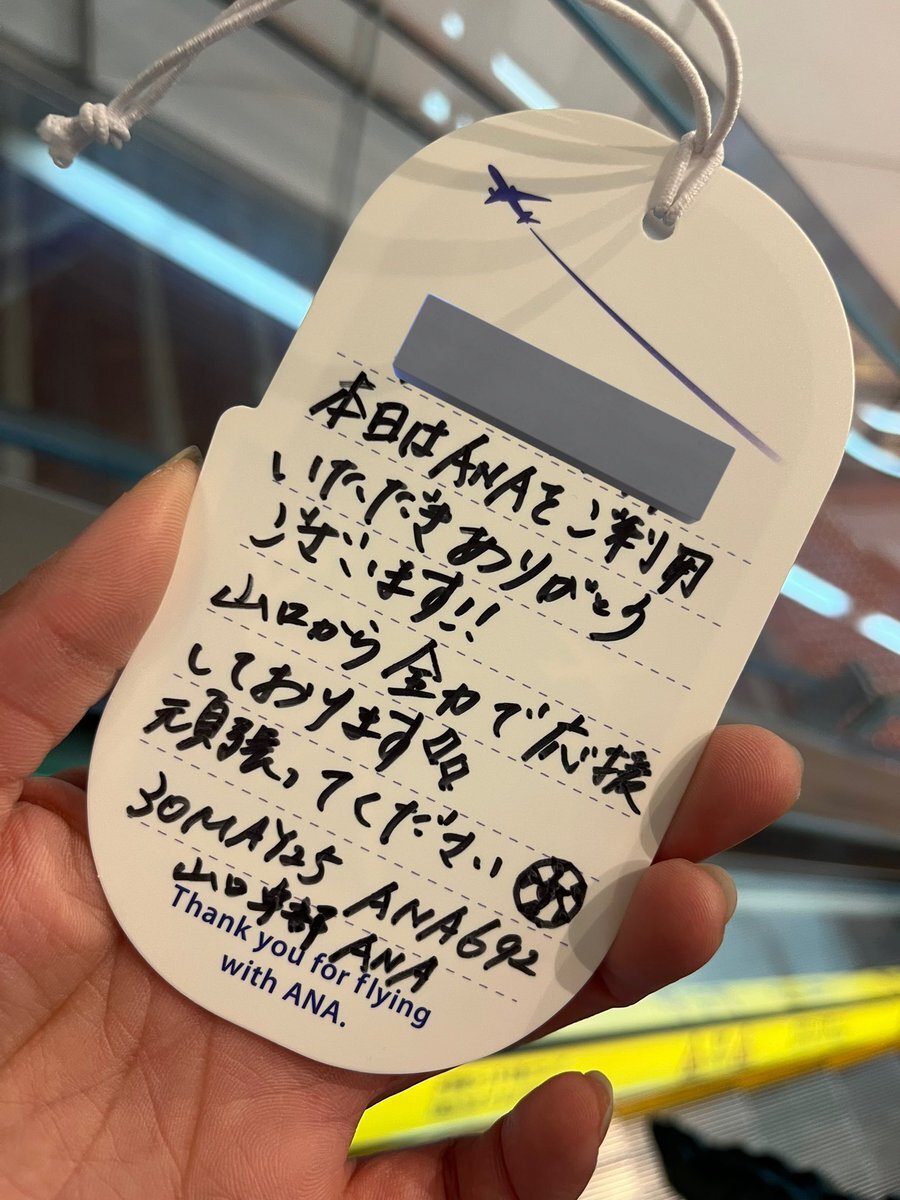 本日はANAをご利用
いただきありがとう
ございます!!
山口から全力で応援
しております
頑張ってください
30MAY25 ANA692
山口宇部 ANA
Thank you for flying
with ANA.